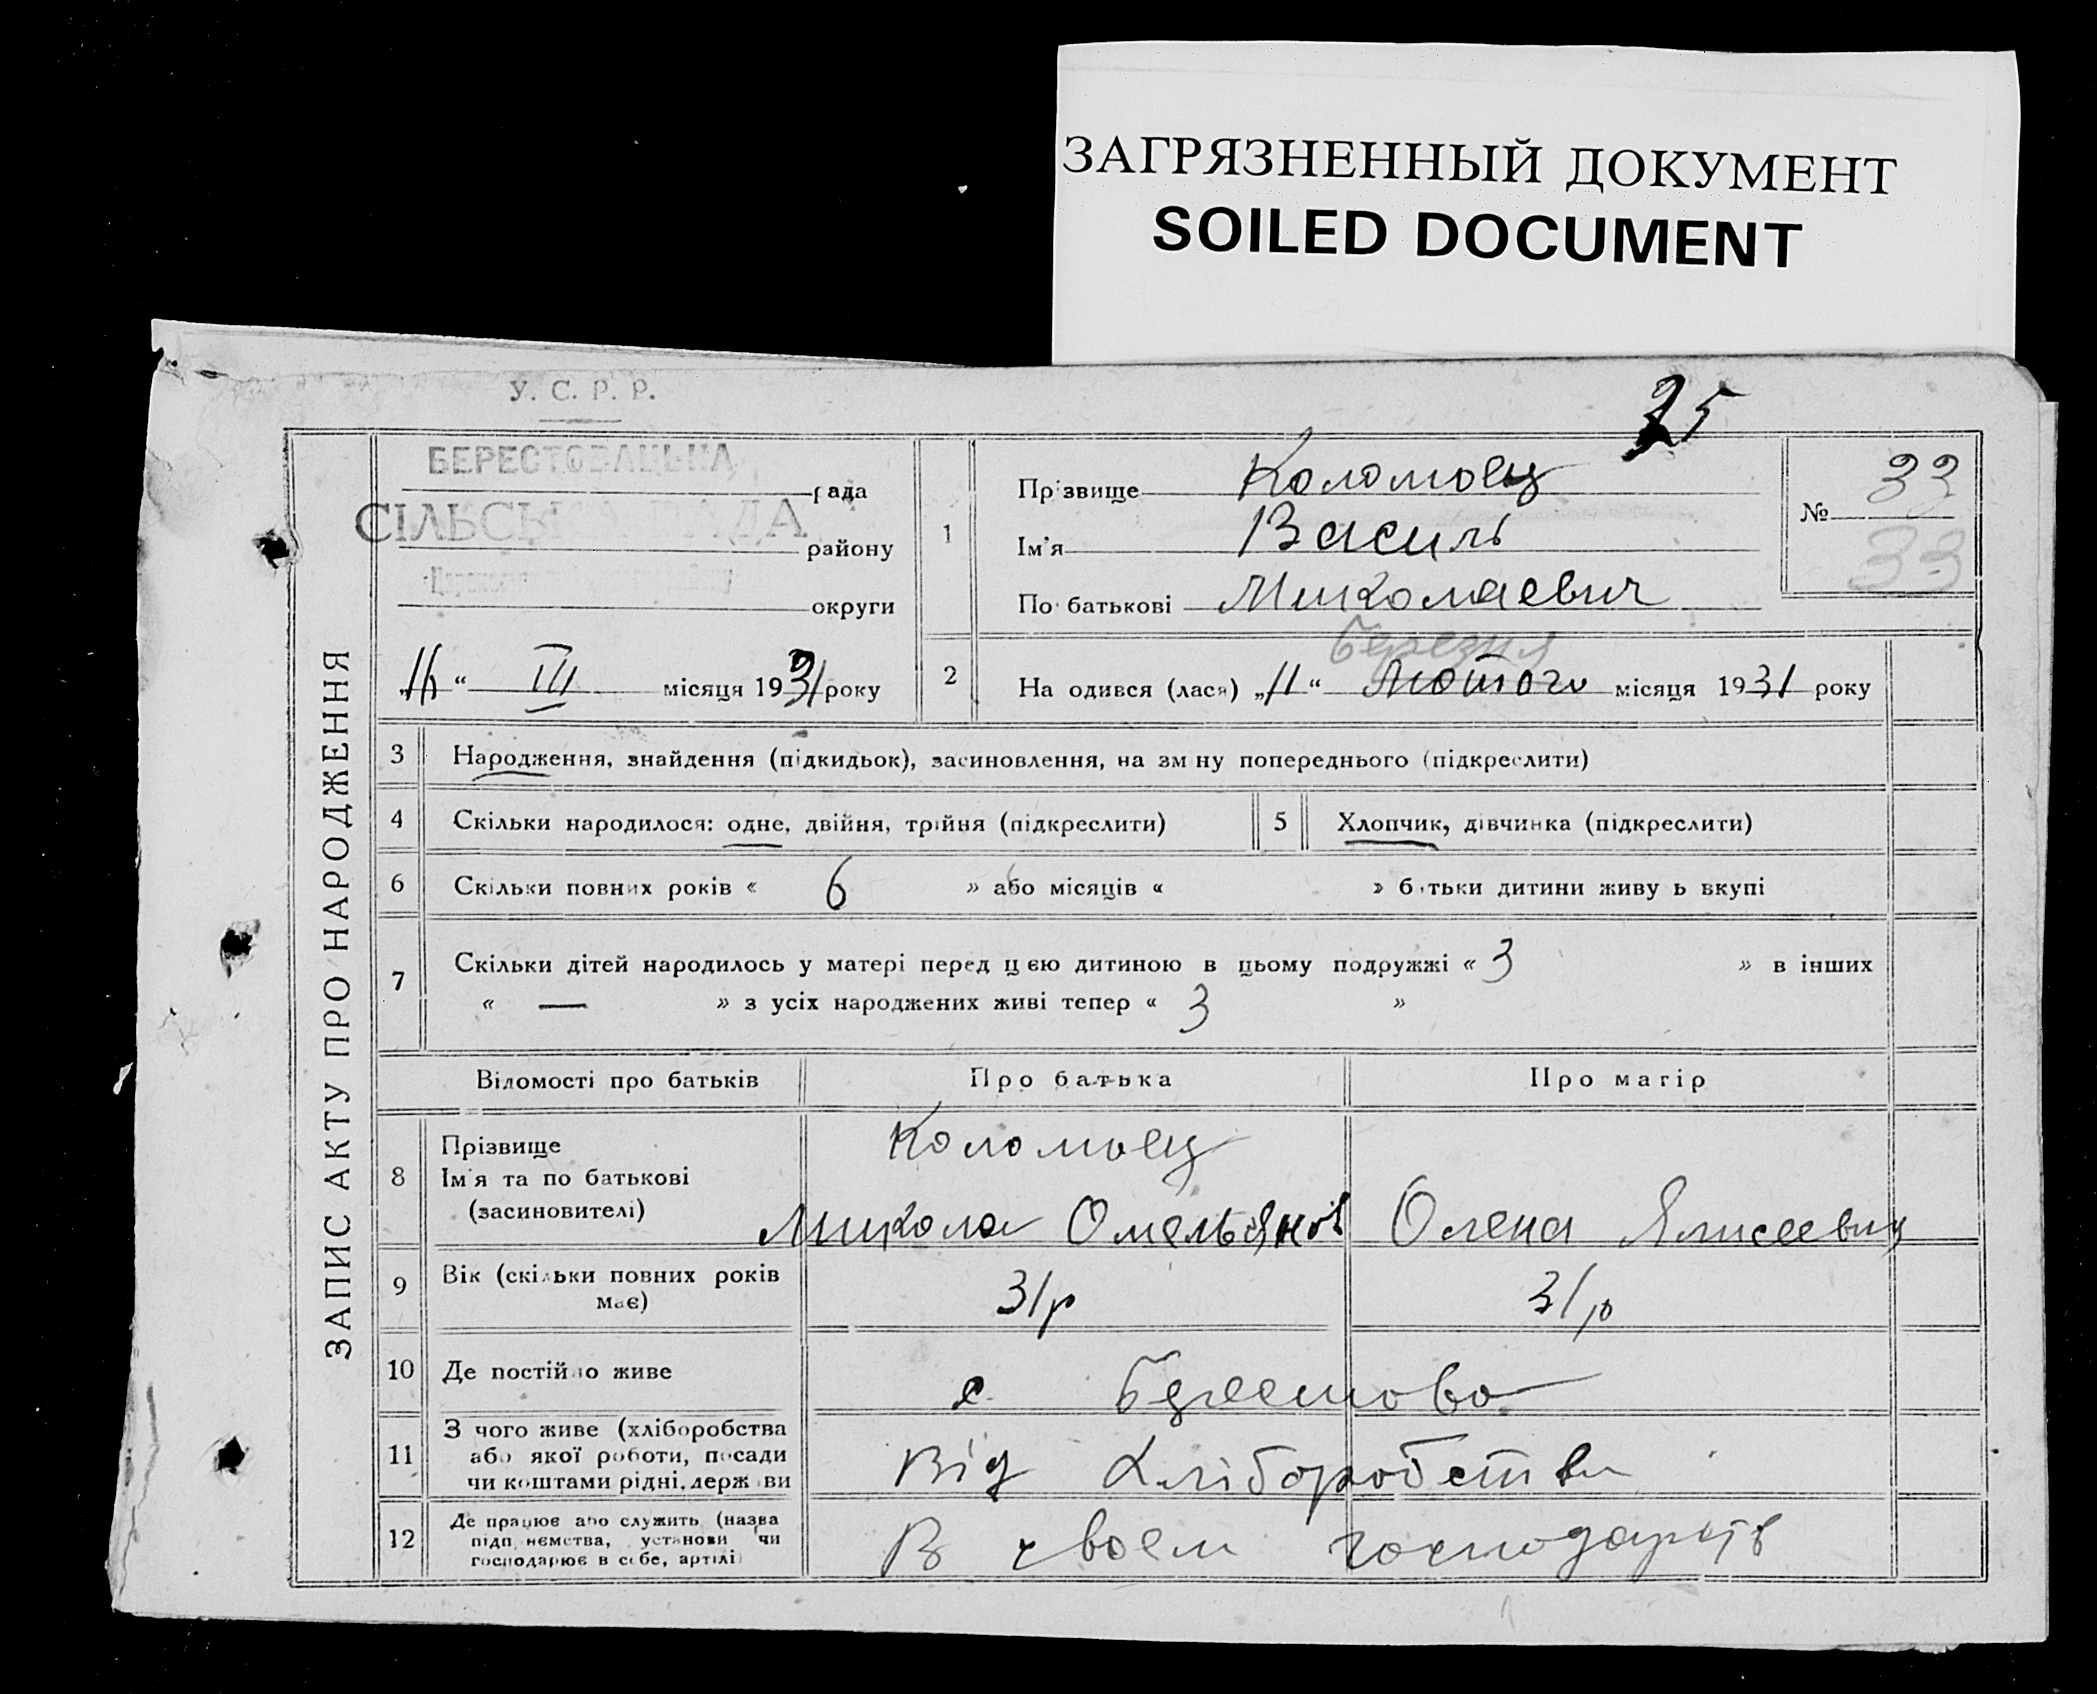 ЗАГРЯЗНЕННЫЙ ДОКУМЕНТ
SOILED DOCUMENT
У. С. Р. Р.
25
ЗАПИС АКТУ ПРО НАРОДЖЕННЯ
БЕРЕСТОВАЦЬКА
рада
СІЛЬСЬКА РАДА
району
округи
„11“ III місяця 1931 року
1
Прізвище Коломоец
Ім'я Василь
По батькові Миколаевич
№ 33
33
2
березня
На одився (лася) „11“ Лютого місяця 1931 року
3 Народження, знайдення (підкидьок), засиновлення, на зміну попереднього (підкреслити)
4 Скільки народилося: одне, двійня, трійня (підкреслити)
5 Хлопчик, дівчинка (підкреслити)
6 Скільки повних років « 6 » або місяців « » батьки дитини живуть вкупі
7 Скільки дітей народилось у матері перед цією дитиною в цьому подружжі « 3 » в інших
« — » з усіх народжених живі тепер « 3 »
Відомості про батьків Про батька Про матір
8 Прізвище
Ім'я та по батькові
(засиновителі)
Коломоец
Микола Омельянов Олена Ялисеевна
9 Вік (скільки повних років
має)
31р 31р
10 Де постійно живе с. Берестово
11 З чого живе (хліборобства
або якої роботи, посади
чи коштами рідні, держави
Від хліборобства
12 Де працює або служить (назва
підприємства, установи чи
господарює в себе, артілі)
В своем господарстві